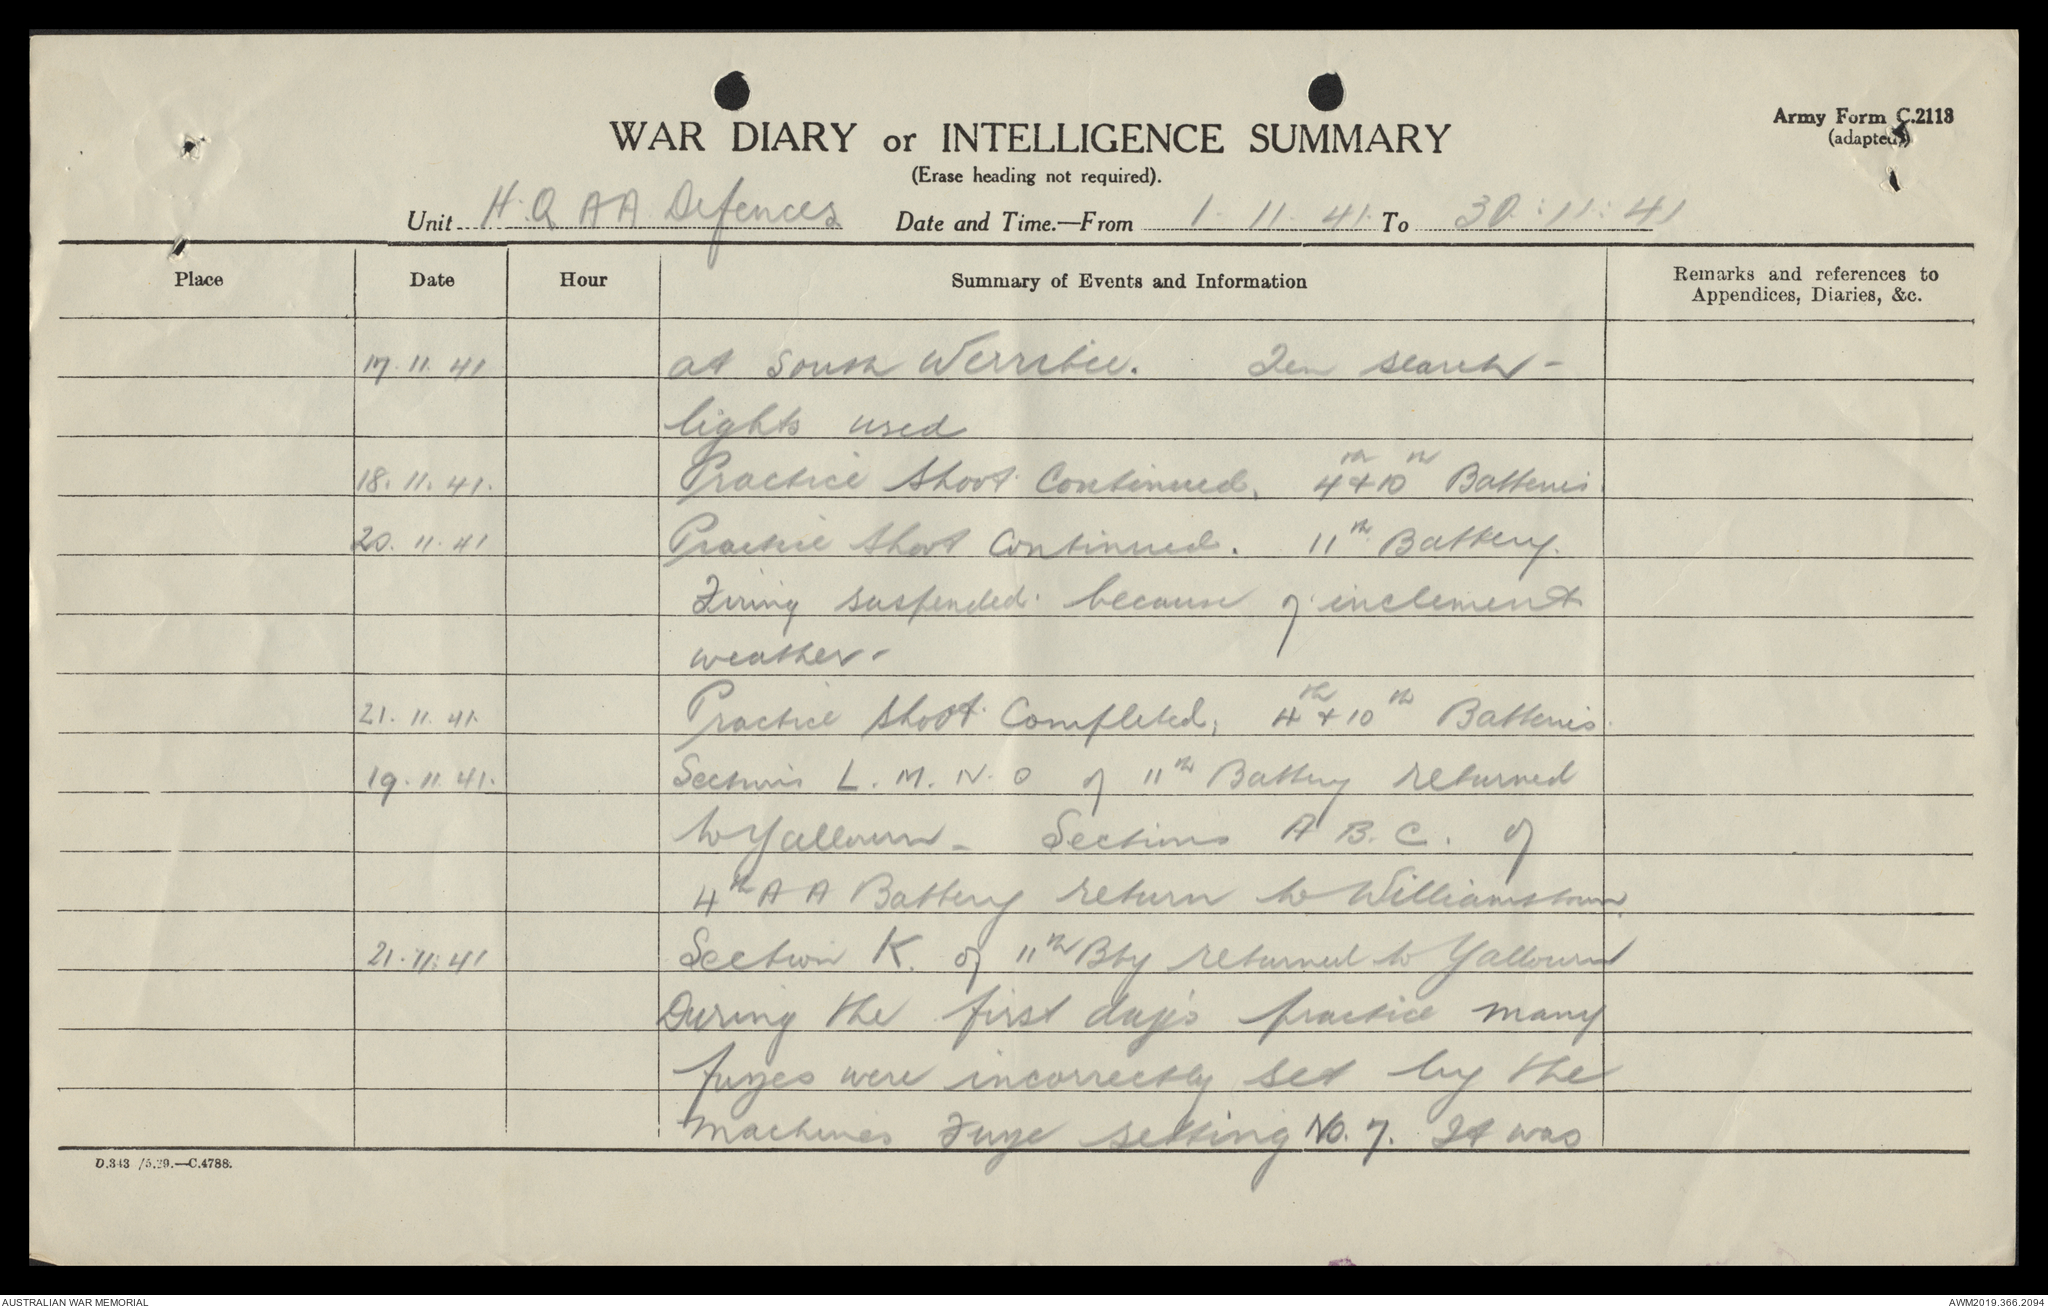 Army Form C.2118
(adapted)
WAR DIARY or INTELLIGENCE SUMMARY
(Erase heading not required).
Unit H.Q AA Defences Date and Time.—From 1. 11. 41. To 30:11:41
Place Date Hour Summary of Events and Information Remarks and references to
Appendices, Diaries, &c.
17. 11. 41 at South Werribee. Ten search-
lights used
18. 11. 41. Practice Shoot Continued, 4th + 10th Batteries.
20. 11. 41 Practice Shoot Continued. 11th Battery.
Firing suspended because of inclement
weather.
21. 11. 41. Practice Shoot Completed, 4th + 10th Batteries.
19. 11. 41. Sections L. M. N. O of 11th Battery returned
to Yallourn - Sections A B. C. of
4th A A Battery return to Williamstown.
21. 11. 41 Section K. of 11th Bty returned to Yallourn
During the first day's practice many
fuzes were incorrectly set by the
Machines Fuze setting No. 7. It was
D.343 /5.39.—C.4788.
AUSTRALIAN WAR MEMORIAL AWM2019.366.2094